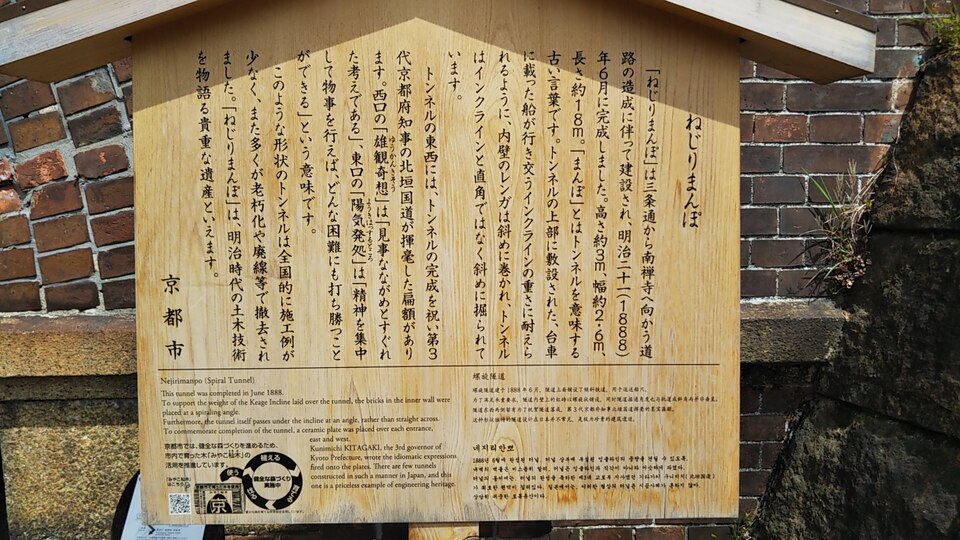 ねじりまんぽ
「ねじりまんぽ」は三条通から南禅寺へ向かう道
路の造成に伴って建設され、明治二十一(1888)
年6月に完成しました。高さ約3m、幅約2・6m、
長さ約18m。「まんぽ」とはトンネルを意味する
古い言葉です。トンネルの上部に敷設された、台車
に載った船が行き交うインクラインの重さに耐えら
れるように、内壁のレンガは斜めに巻かれ、トンネル
はインクラインと直角ではなく斜めに掘られて
います。
トンネルの東西には、トンネルの完成を祝い第3
代京都府知事の北垣国道が揮毫した扁額があり
ます。西口の「雄観奇想」は「見事なながめとすぐれ
た考えである」、東口の「陽気発処」は「精神を集中
して物事を行えば、どんな困難にも打ち勝つこと
ができる」という意味です。
このような形状のトンネルは全国的に施工例が
少なく、また多くが老朽化や廃線等で撤去され
ました。「ねじりまんぽ」は、明治時代の土木技術
を物語る貴重な遺産といえます。
京都市
Nejirimanpo (Spiral Tunnel)
This tunnel was completed in June 1888.
To support the weight of the Keage Incline laid over the tunnel, the bricks in the inner wall were
placed at a spiraling angle.
Furthermore, the tunnel itself passes under the incline at an angle, rather than straight across.
To commemorate completion of the tunnel, a ceramic plate was placed over each entrance,
east and west.
Kunimichi KITAGAKI, the 3rd governor of
Kyoto Prefecture, wrote the idiomatic expressions
fired onto the plates. There are few tunnels
constructed in such a manner in Japan, and this
one is a priceless example of engineering heritage.
京都市では、健全な森づくりを進めるため、
市内で育った木「みやこ杣木」の
活用を推進しています。
「みやこ杣木」
はこちら
植える
使う
健全な森づくり
実施中
京
螺旋隧道
螺旋隧道建于1888年6月。
네지리만포